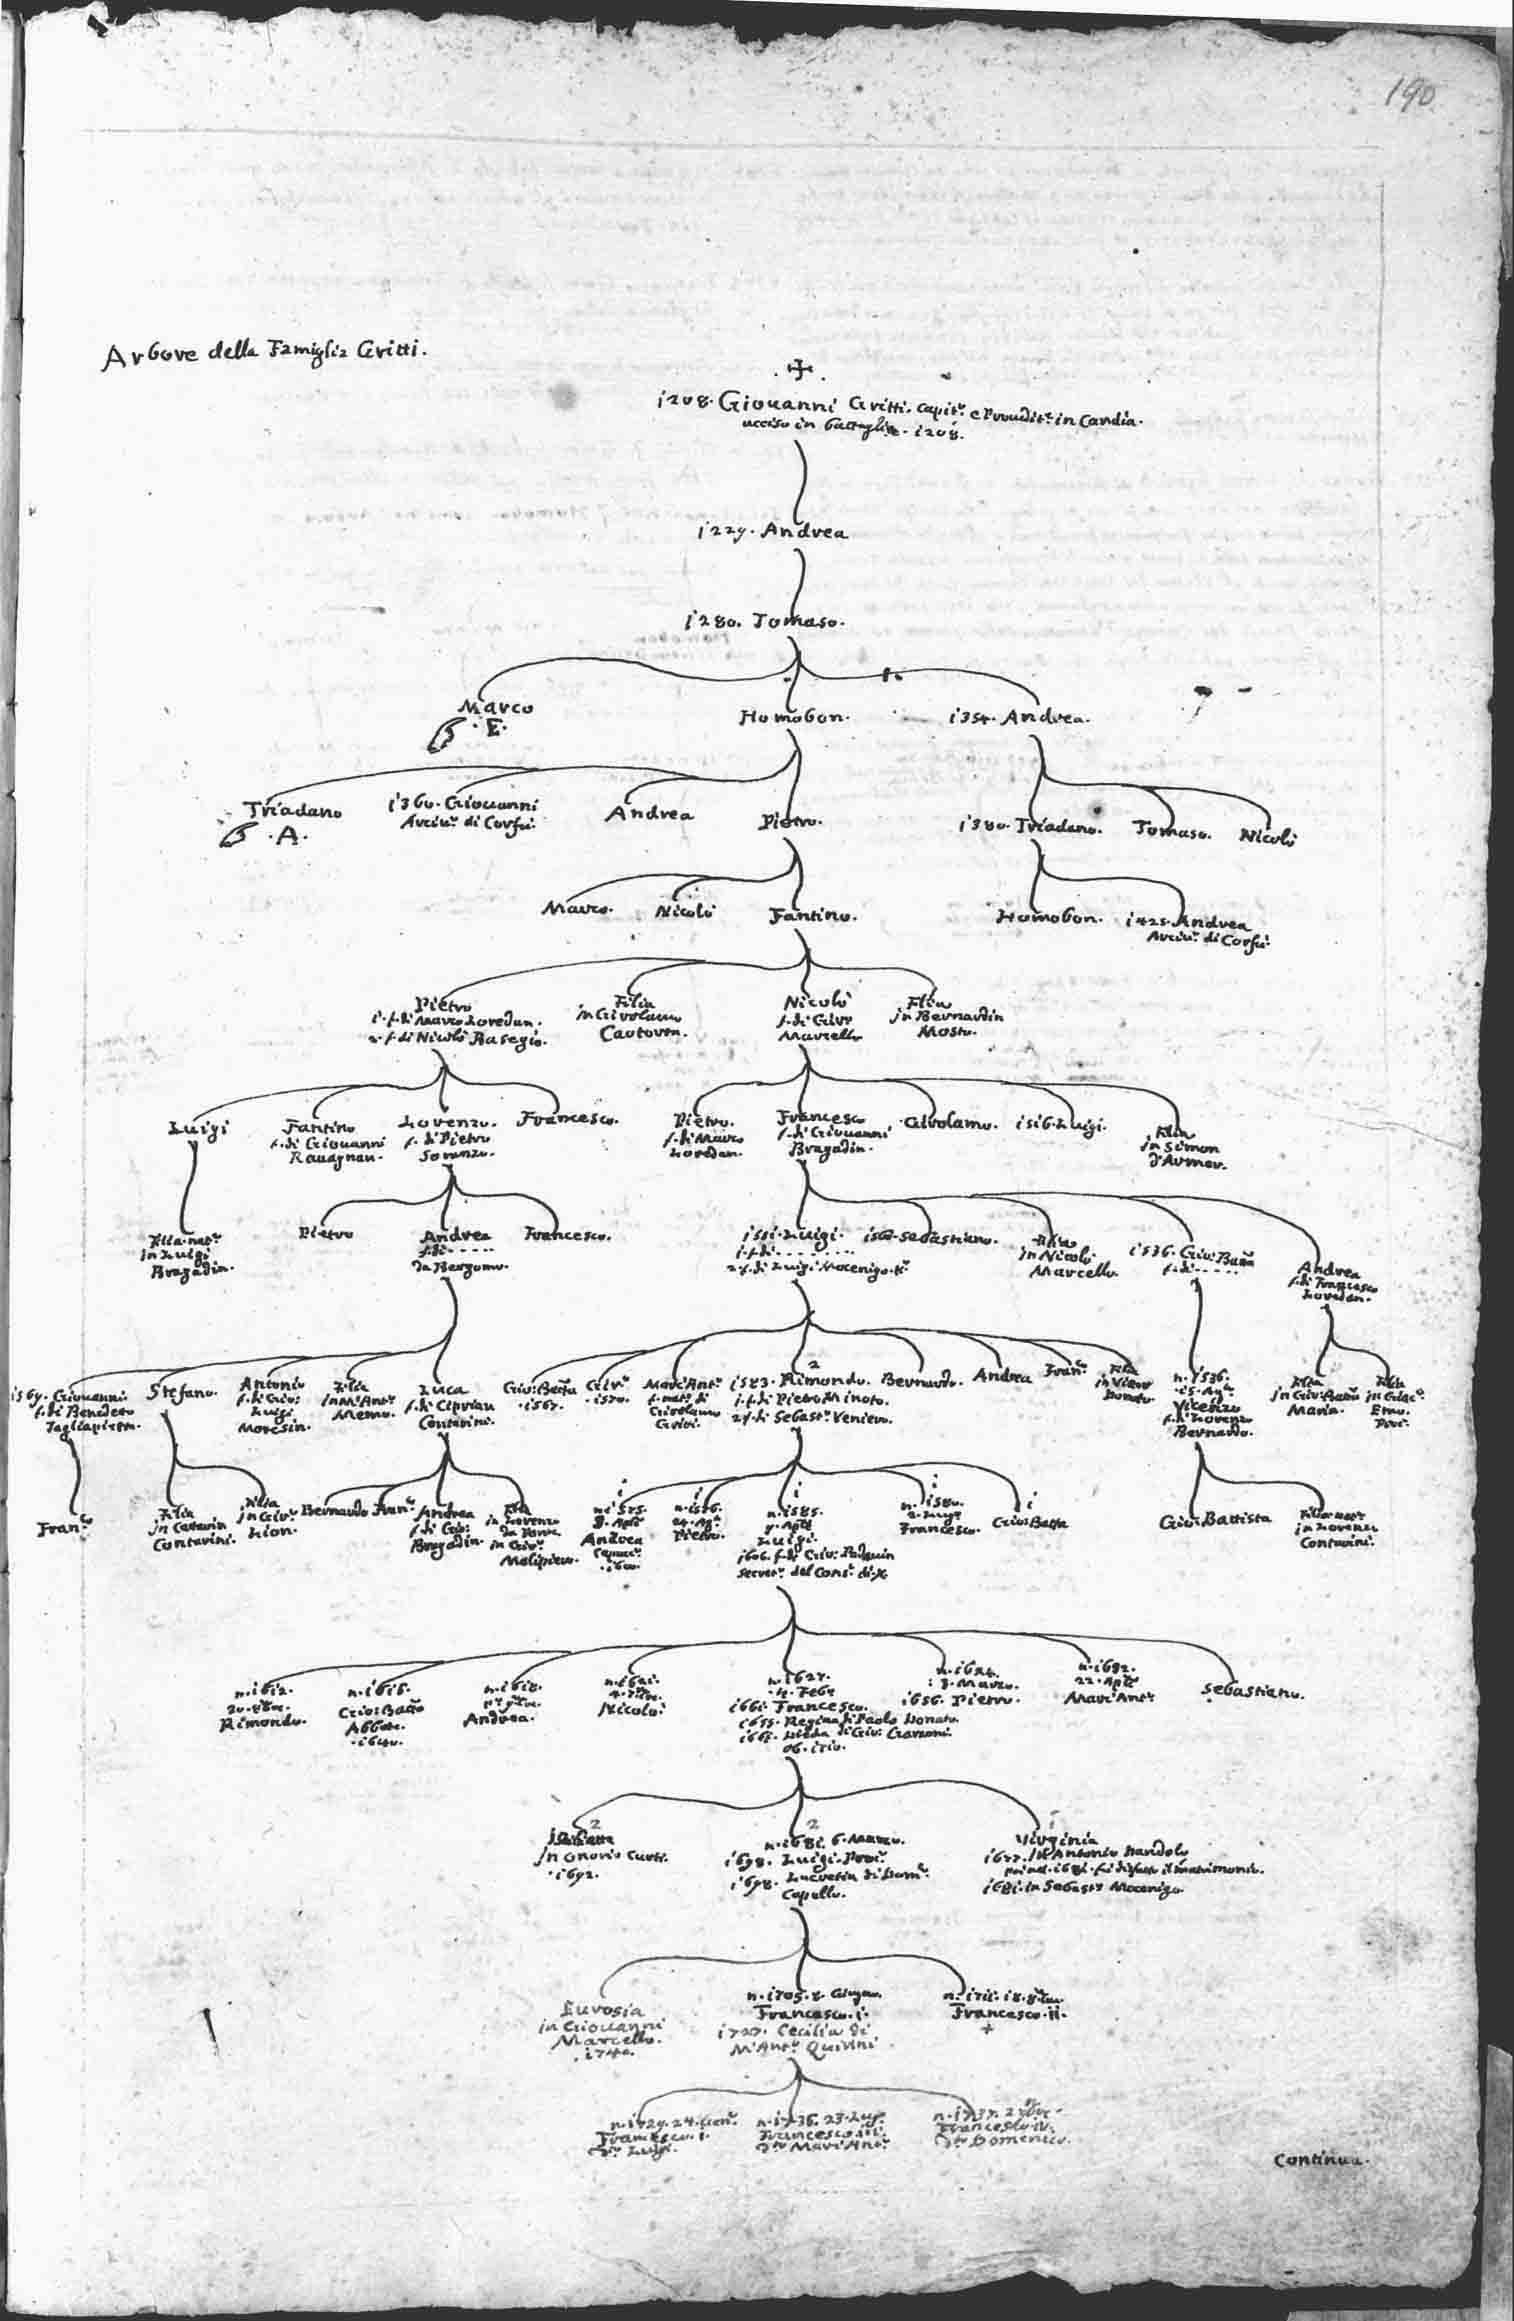 190
Arbore della Famiglia Gritti.
1208. Giouanni Gritti. Capit.º e Proudit.º in Candia.
ucciso in battaglia. 1208.
1229. Andrea
1280. Tomaso.
Marco
.E.
Homobon.
1354. Andrea.
Triadano
.A.
1360. Giouanni
Arciu.º di Corfù.
Andrea
Pietro.
1380. Triadano.
Tomaso.
Nicolò
Marco.
Nicolò
Fantino.
Homobon.
1425. Andrea
Arciu.º di Corfù.
Pietro
1. f. di Marco Loredan.
2. f. di Nicolò Basegio.
Filia
in Girolamo
Caotorta.
Nicolò
f. di Giro
Marcello
Filia
in Bernardin
Mosto.
Luigi
Fantino
f. di Giouanni
Rauagnan.
Lorenzo.
f. di Pietro
Soranzo.
Francesco.
Pietro.
f. di Marco
Loredan.
Francesco
f. di Giouanni
Bragadin.
Girolamo.
1516. Luigi.
Filia
in Simon
d'Armer.
Filia nat.
in Luigi
Bragadin.
Pietro
Andrea
f. di ......
da Bergomo.
Francesco.
1551. Luigi.
1. f. di ........
2. f. di Luigi Mocenigo K.r
Sebastiano.
Filia
in Nicolò
Marcello.
1536. Gio: Batta
f. di .....
Andrea
f. di Francesco
Loredan.
1569. Giouanni
f. di Benedetto
Tagliapietra.
Stefano.
Antonio
f. di Gio:
Luigi
Moresin.
Filia
in M. Ant.º
Memo.
Luca
f. di Ciprian
Contarini.
Gio: Batta
.1567.
Gir.º
.1570.
Marc'Ant.º
f. nat. di
Girolamo
Gritti.
2
1583. Rimondo.
1. f. di Pietro Minoto.
2. f. di Sebast.º Venier.
Bernardo.
Andrea
Fran.º
Filia
in Vicenzo
Donato.
n. 1536.
15. Ag.º
Vicenzo
f. di Lorenzo
Bernardo.
Filia
in Gio: Batta
Maria.
Filia
in Giac.º
Emo.
Proc.
Fran.º
Filia
in Catarin
Contarini.
Filia
in Gir.º
Lion.
Bernardo
Fran.º
Andrea
f. di Gio:
Bragadin.
Filia
in Lorenzo
da Ponte
in Gir.º
Malipiero.
1
n. 1575.
8. Aple
Andrea
1
n. 1576.
24. Ag.º
Pietro.
1
n. 1585.
9. Aple
Luigi.
1606. f. di Gio: Padauin
Secret.º del Cons.º di X.
1
n. 1580.
2. Luge
Francesco.
1
Gio: Batta
Gio: Battista
Filia nat.
in Lorenzo
Contarini.
n. 1612.
20. 8bre.
Rimondo.
n. 1616.
Gio: Batta
Abbate.
.1640.
n. 1618.
Andrea.
n. 1621.
Nicolò.
n. 1627.
4. Febr
1661. Francesco.
1655. Regina di Paolo Donato.
di Gio: Garzoni.
ob. 1710.
n. 1624.
3. Marzo.
1656. Pietro.
n. 1632.
22. Aple
Marc'Ant.º
Sebastiano.
2
in Onorio Curti.
.1692.
2
n. 1681. 6. Marzo.
1698. Luigi. Proc.
1698. Lucretia di Dom.º
Capello.
1
Virginia
1677. in Antonio Dandolo
1681. in Sebast.º Mocenigo.
Eurosia
in Giouanni
Marcello.
.1740.
n. 1705. 8. Giugno.
Francesco. i.
1727. Cecilia di
M. Ant.º Quirini
n. 1711. 18. 8bre
Francesco. ii.
n. 1729. 24. Gen.º
Francesco. i.
d.º Luigi.
n. 1736. 23. Lug.
Francesco. iii.
d.º Marc'Ant.º
n. 1737.
Francesco. iv.
d.º Domenico.
Continua.